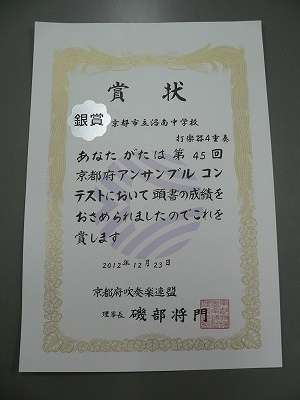 賞状
銀賞
京都市立洛南中学校
打楽器4重奏
あなたがたは第45回
京都府アンサンブルコン
テストにおいて頭書の成績を
おさめられましたのでこれを
賞します
2012年12月23日
京都府吹奏楽連盟
理事長 磯部将門